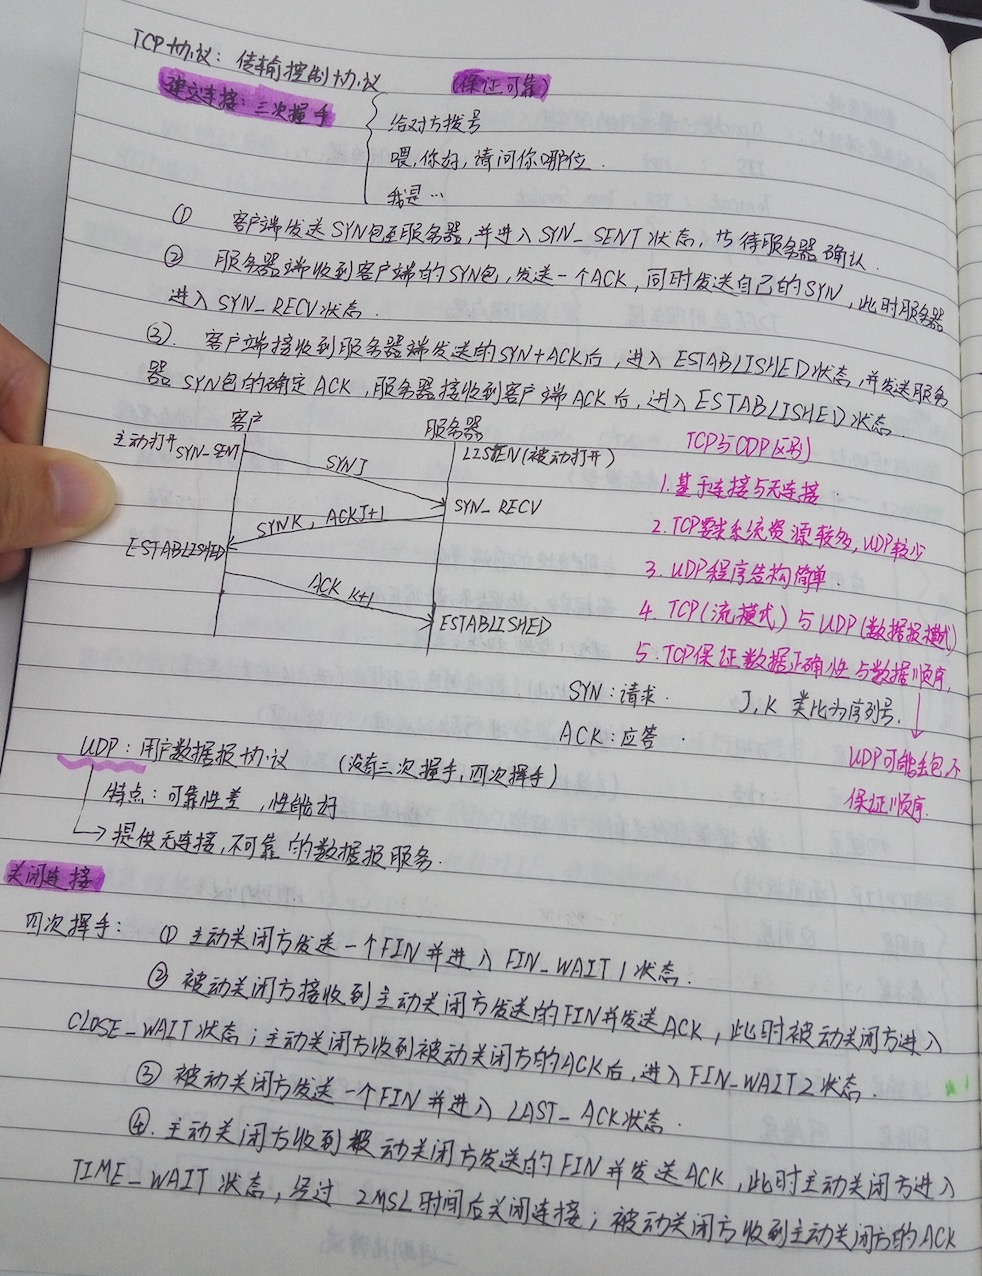 TCP协议：传输控制协议
建立连接：三次握手
(保证可靠)
给对方拨号
喂,你好,请问你哪位.
我是…
① 客户端发送SYN包至服务器,并进入SYN_SENT状态,等待服务器确认.
② 服务器端收到客户端的SYN包,发送一个ACK,同时发送自己的SYN,此时服务器
进入SYN_RECV状态.
③. 客户端接收到服务器端发送的SYN+ACK后,进入ESTABLISHED状态,并发送服务
器SYN包的确定ACK,服务器接收到客户端ACK后,进入ESTABLISHED状态.
客户
服务器
主动打开SYN_SENT
LISTEN(被动打开)
SYNJ
SYN_RECV
SYNK, ACKJ+1
ESTABLISHED
ACK K+1
ESTABLISHED
TCP与UDP区别
1.基于连接与无连接
2.TCP要求系统资源较多,UDP较少
3.UDP程序结构简单
4.TCP(流模式)与UDP(数据报模式)
5.TCP保证数据正确性与数据顺序,
UDP可能丢包不
保证顺序.
SYN:请求.
J,K类比为序列号.
ACK:应答.
UDP:用户数据报协议 (没有三次握手,四次挥手)
特点:可靠性差,性能好
提供无连接,不可靠的数据报服务.
关闭连接
四次挥手: ① 主动关闭方发送一个FIN并进入FIN_WAIT1状态.
② 被动关闭方接收到主动关闭方发送的FIN并发送ACK,此时被动关闭方进入
CLOSE_WAIT状态;主动关闭方收到被动关闭方的ACK后,进入FIN_WAIT2状态.
③ 被动关闭方发送一个FIN并进入LAST_ACK状态.
④. 主动关闭方收到被动关闭方发送的FIN并发送ACK,此时主动关闭方进入
TIME_WAIT状态,经过2MSL时间后关闭连接;被动关闭方收到主动关闭方的ACK